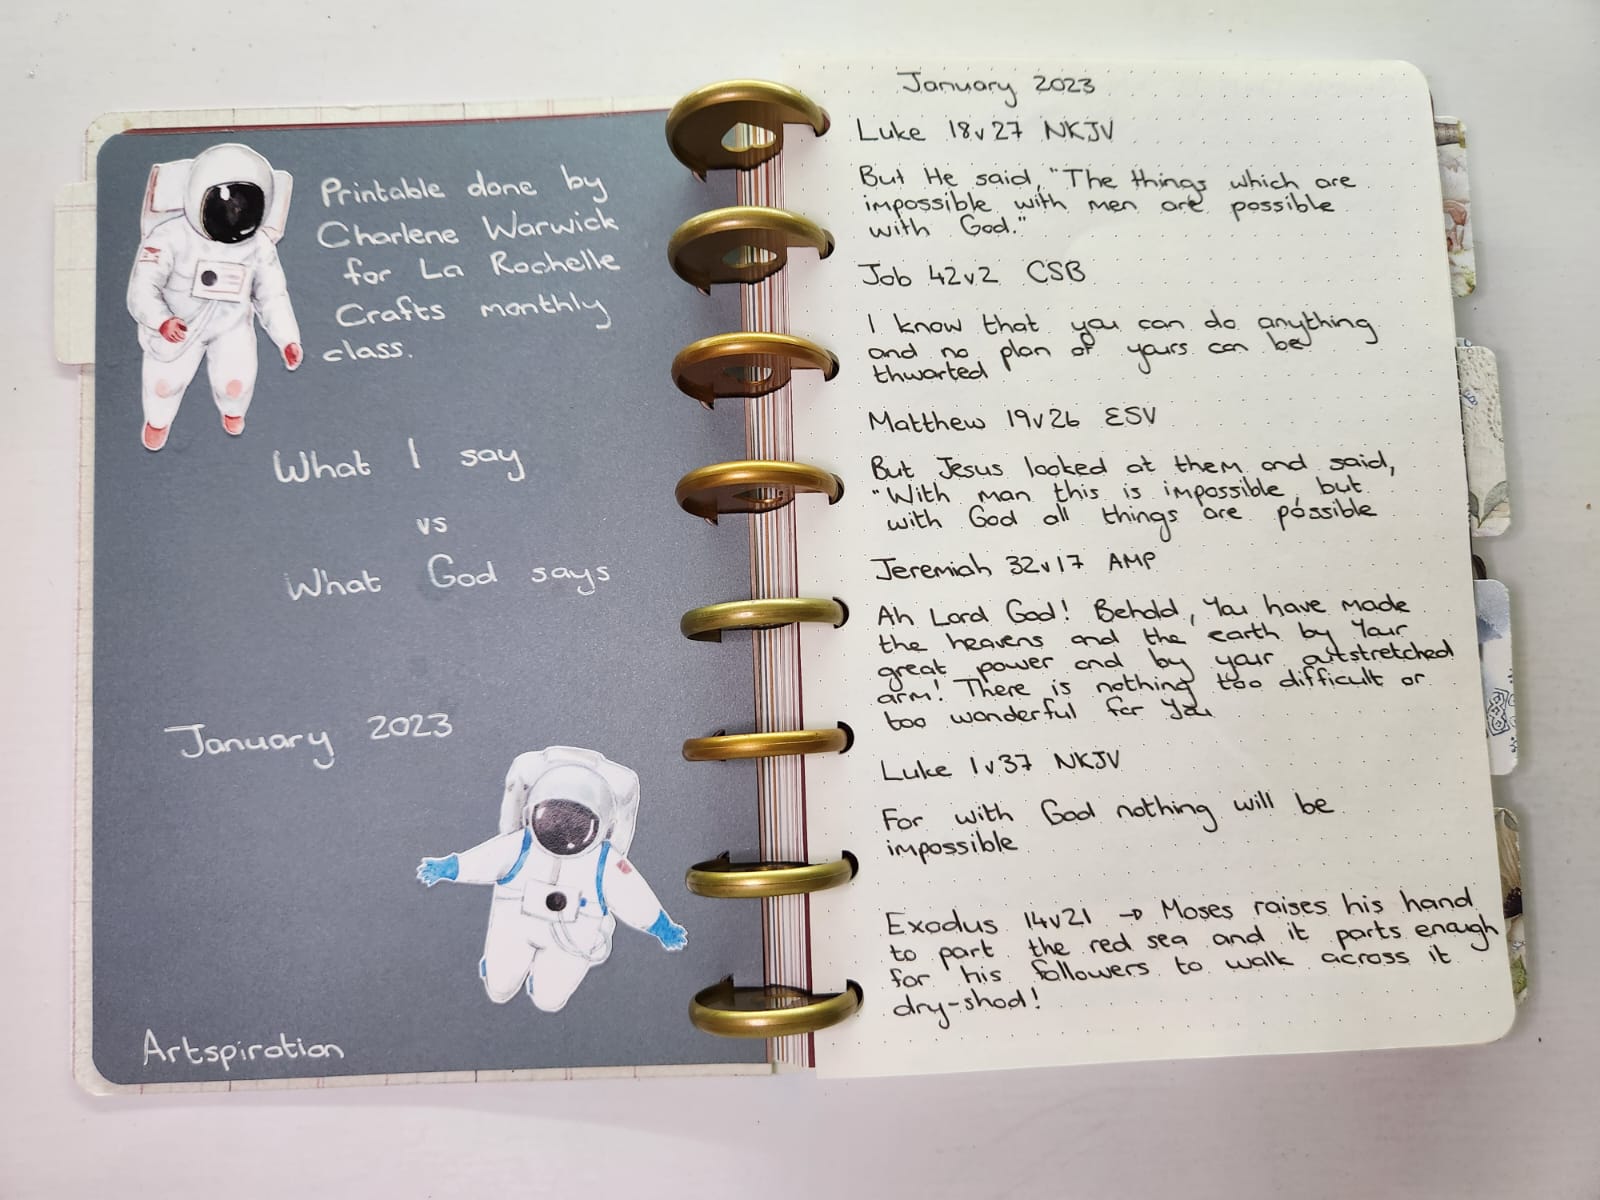 Printable done by
Charlene Warwick
for La Rochelle
Crafts monthly
class.
What I say
vs
What God says
January 2023
Artspiration
January 2023
Luke 18v27 NKJV
But He said, "The things which are
impossible with men are possible
with God."
Job 42v2 CSB
I know that you can do anything
and no plan of yours can be
thwarted
Matthew 19v26 ESV
But Jesus looked at them and said,
"With man this is impossible, but
with God all things are possible
Jeremiah 32v17 AMP
Ah Lord God! Behold, You have made
the heavens and the earth by Your
great power and by your outstretched
arm! There is nothing too difficult or
too wonderful for You
Luke 1v37 NKJV
For with God nothing will be
impossible
Exodus 14v21 → Moses raises his hand
to part the red sea and it parts enough
for his followers to walk across it
dry-shod!